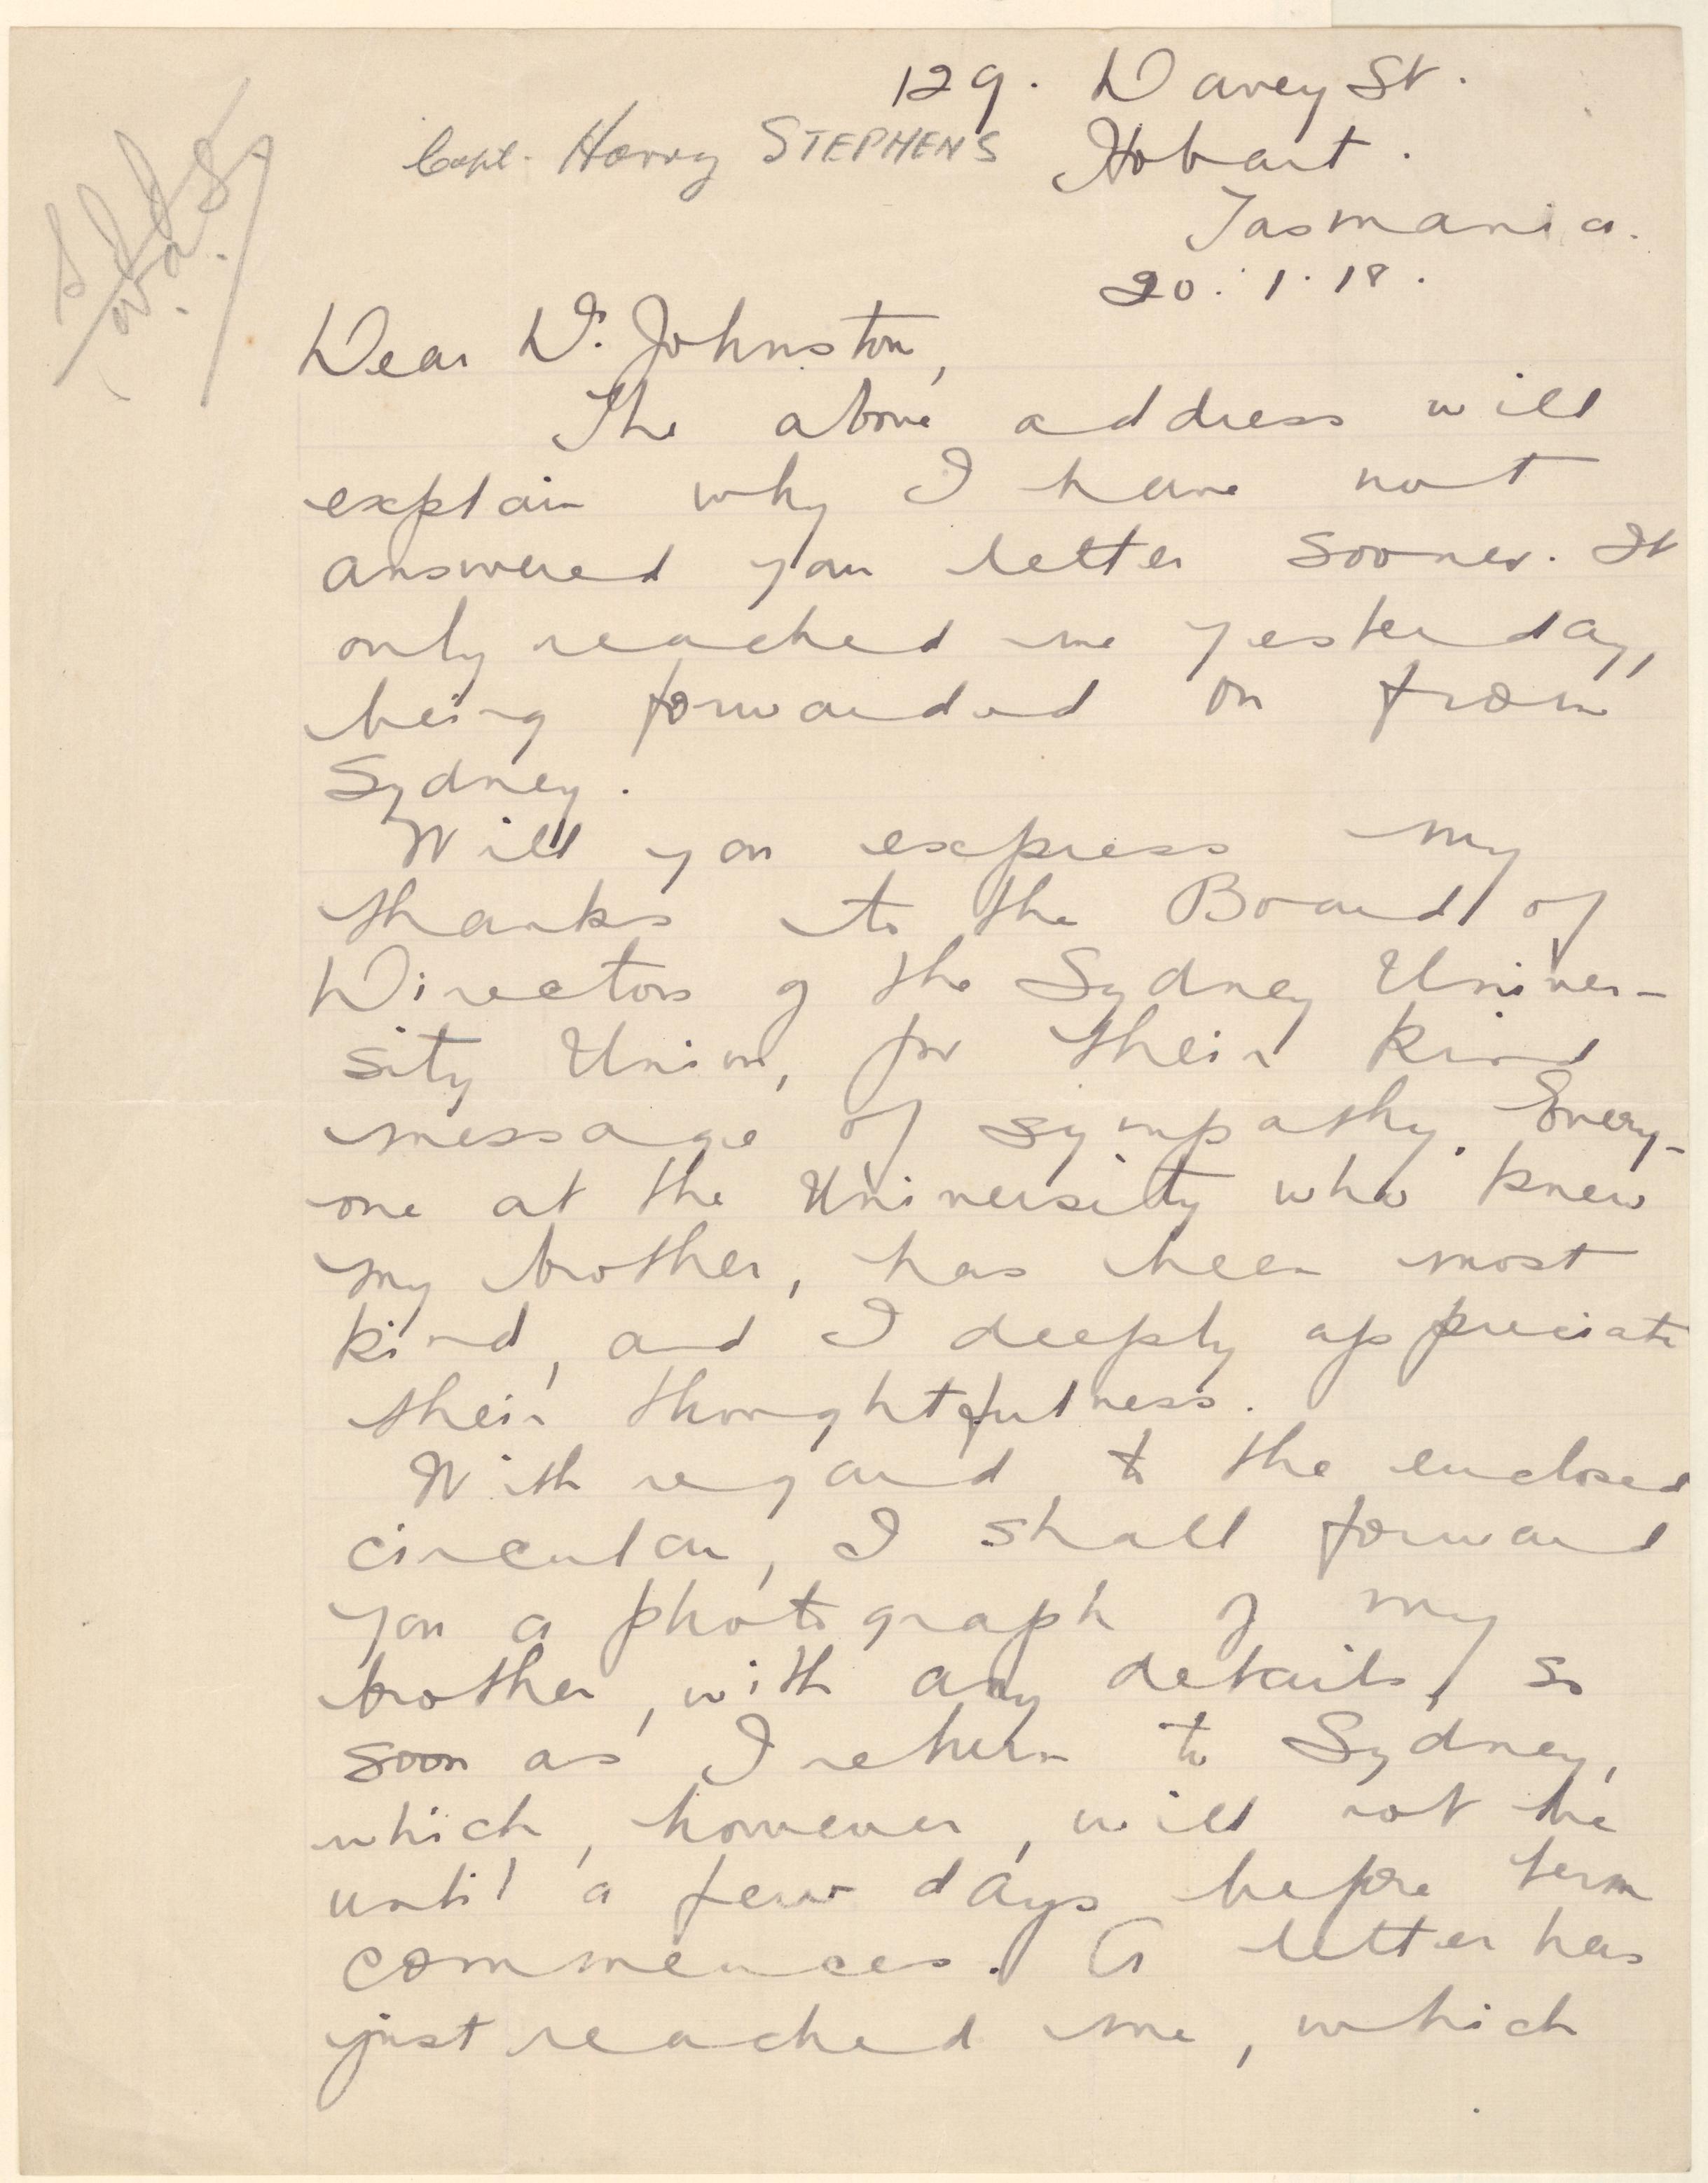 129. Davey St.
Capt. Harry STEPHENS
Hobart.
Tasmania.
20.1.18.
Dear Dr. Johnston,
The above address will
explain why I have not
answered your letter sooner. It
only reached me yesterday,
being forwarded on from
Sydney.
Will you express my
thanks to the Board of
Directors of the Sydney Univer-
sity Union, for their kind
message of sympathy. Every-
one at the University who knew
my brother, has been most
kind, and I deeply appreciate
their thoughtfulness.
With regard to the enclosed
circular, I shall forward
you a photograph of my
brother, with any details, so
soon as I return to Sydney,
which, however, will not be
until a few days before term
commences. A letter has
just reached me, which